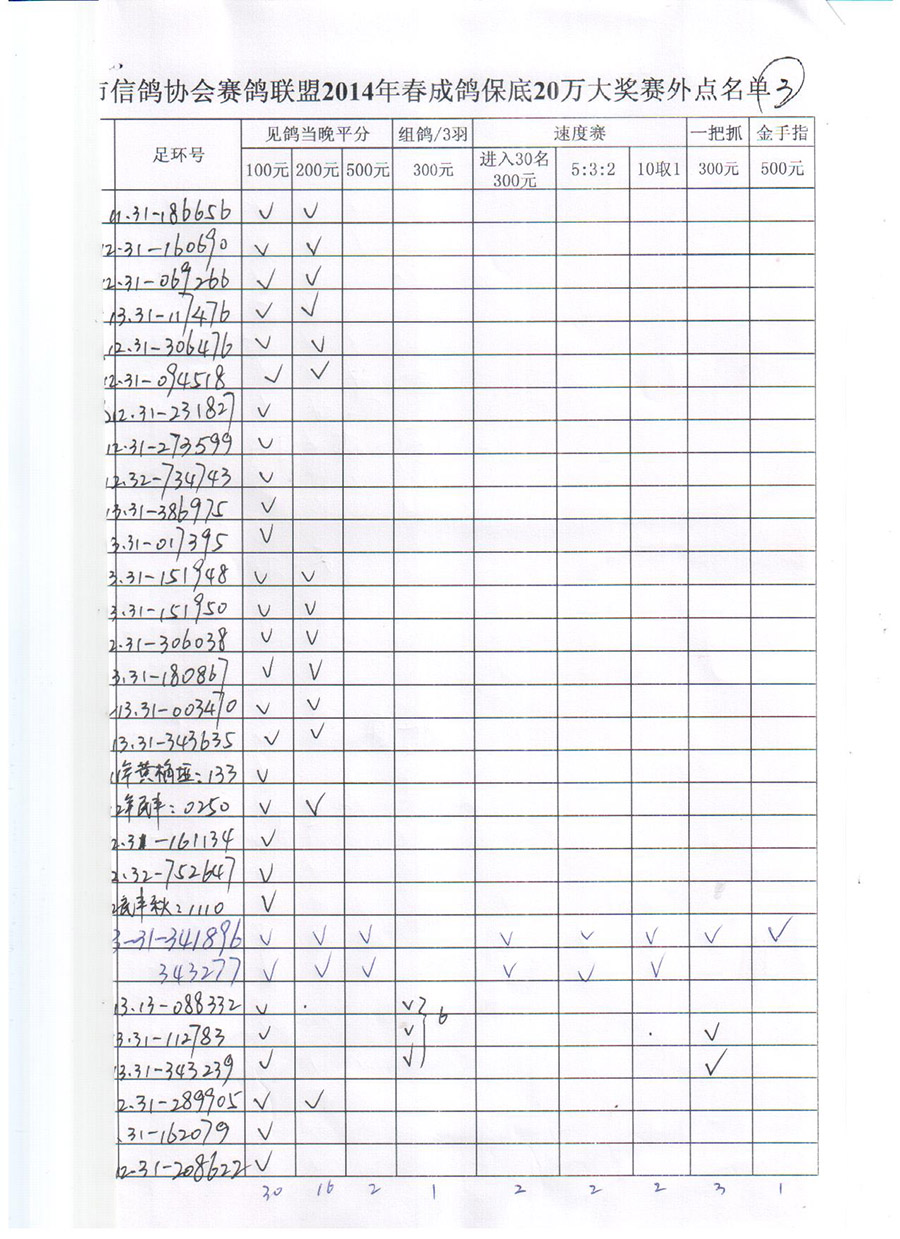 市信鸽协会赛鸽联盟2014年春成鸽保底20万大奖赛外点名单 3
足环号 见鸽当晚平分 组鸽/3羽 速度赛 一把抓 金手指
100元 200元 500元 300元 进入30名300元 5:3:2 10取1 300元 500元
.31-186656 ✓ ✓
12.31-160690 ✓ ✓
12.31-069266 ✓ ✓
13.31-117476 ✓ ✓
12.31-306476 ✓ ✓
12.31-094518 ✓ ✓
12.31-231827 ✓
12.31-273599 ✓
12.32-734743 ✓
13.31-386975 ✓
3.31-017395 ✓
3.31-151948 ✓ ✓
3.31-151950 ✓ ✓
2.31-306038 ✓ ✓
3.31-180867 ✓ ✓
13.31-003470 ✓ ✓
13.31-343635 ✓ ✓
年黄桷垭:133 ✓
2年民丰:0250 ✓ ✓
2.31-161134 ✓
2.32-752647 ✓
民丰秋:1110 ✓
3-31-341896 ✓ ✓ ✓ ✓ ✓ ✓ ✓ ✓
343277 ✓ ✓ ✓ ✓ ✓ ✓
13.13-088332 ✓ ✓ 6
3.31-112783 ✓ ✓ ✓
13.31-343239 ✓ ✓ ✓
2.31-289905 ✓ ✓
.31-162079 ✓
12.31-208622 ✓
30 16 2 1 2 2 2 3 1